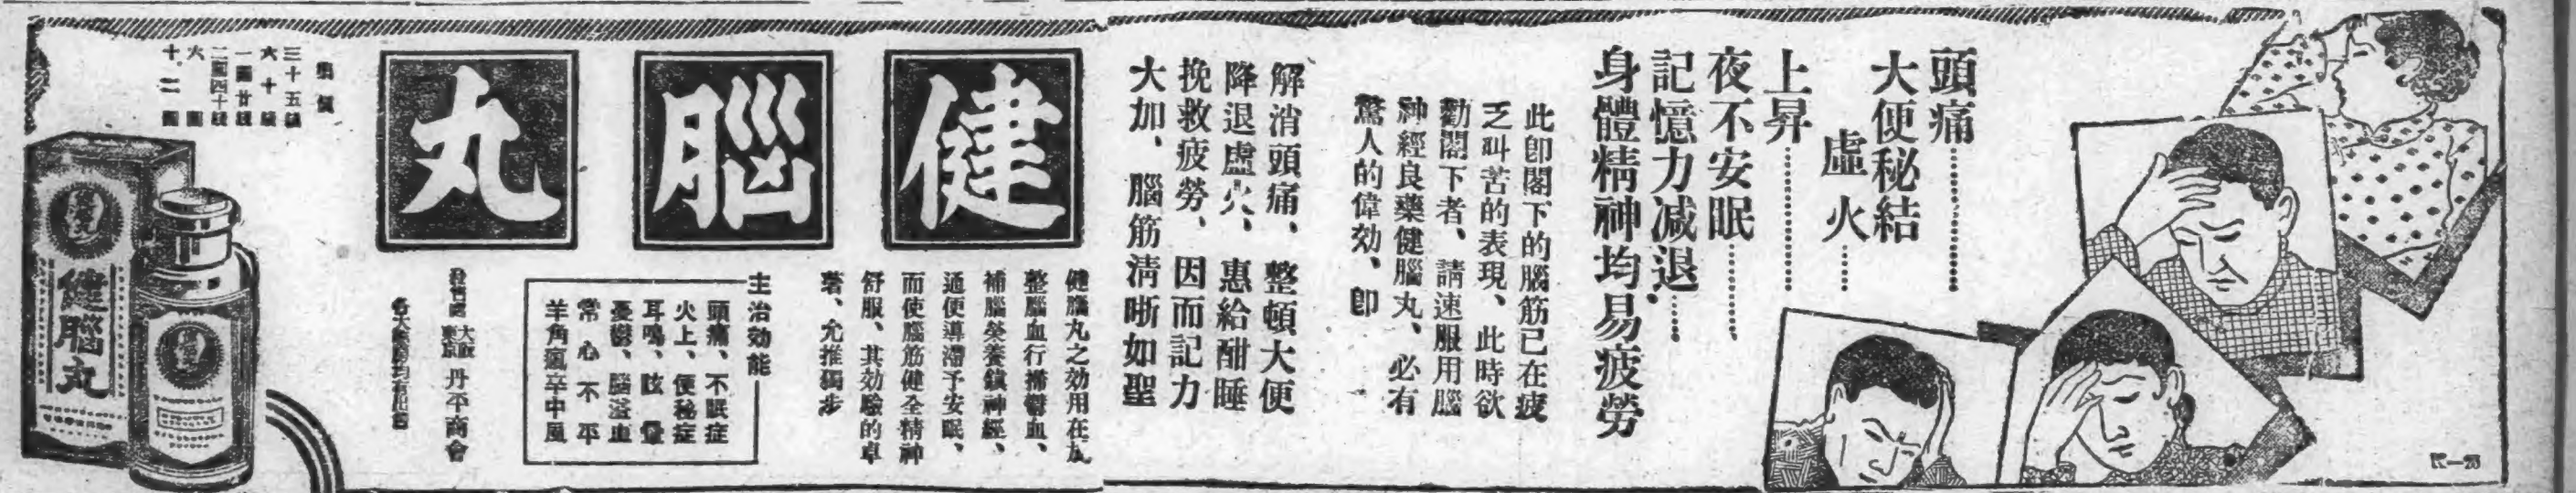 頭痛……
大便秘結
虛火……
上昇……
夜不安眠……
記憶力減退……
身體精神均易疲勞
此卽閣下的腦筋已在疲
乏叫苦的表現、此時欲
勸閣下者、請速服用腦
神經良藥健腦丸、必有
驚人的偉効、卽
解消頭痛、整頓大便
降退虛火、惠給酣睡
挽救疲勞、因而記力
大加、腦筋淸晰如聖
健腦丸
健腦丸之効用在
整腦血行掃鬱血、
補腦榮養鎮神經、
通便導滯予安眠、
而使腦筋健全精神
舒服、其効驗的卓
著、允推獨步
主治効能
頭痛、不眠症
火上、便秘症
耳鳴、眩暈
憂鬱、腦溢血
常心不平
羊角瘋卒中風
發售處 大阪 東京 丹平商會
各大藥房均有出售
三十五錢
六十錢
一圓廿錢
二圓四十錢
六圓
十二圓
健腦丸